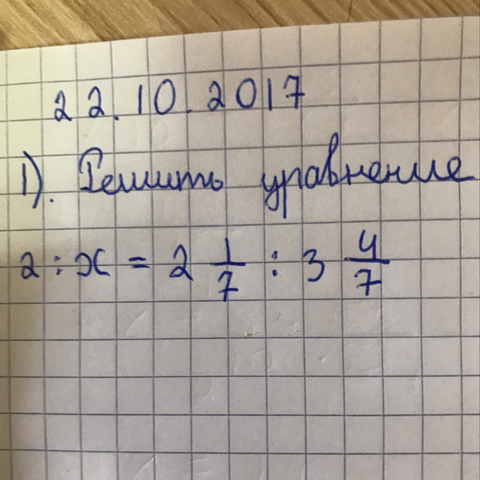 22.10.2017
1). Решить уравнение
2 : x = 2 1/7 : 3 4/7